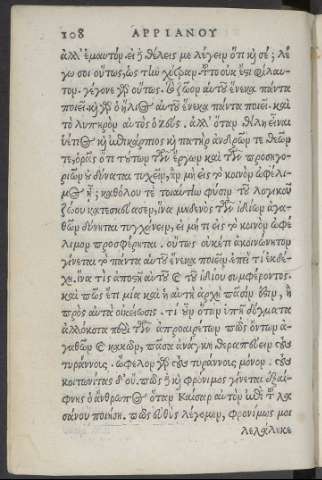 108 ΑΡΡΙΑΝΟΥ
ἀλλ' ἐμαυτόν. εἰ ἢ θέλεις με λέγειν ὅτι καὶ σέ; λέ
γω σοι οὕτως, ὡς τὴν τοῦτο οὐκ ἔστι φίλαυ-
τον. γέγονε γὰρ οὕτως. τὸ ζῶον αὑτοῦ ἕνεκα πάντα
ποιεῖ. καὶ γὰρ ὁ ἥλιος αὑτοῦ ἕνεκα πάντα ποιεῖ. καὶ
τὸ λυπηρὸν αὐτὸς ὁ ζεύς. ἀλλ' ὅταν θέλῃ εἶναι
ὑέτιος καὶ ἐπικάρπιος καὶ πατὴρ ἀνδρῶν τε θεῶν
τε, ὁρᾷς ὅτι τούτων τῶν ἔργων καὶ τῶν προσηγο-
ριῶν οὐ δύναται τυχεῖν, ἂν μὴ εἰς τὸ κοινὸν ὠφέλι-
μος ᾖ; καθόλου τε τοιαύτην φύσιν τοῦ λογικοῦ
ζώου κατεσκεύασεν, ἵνα μηδενὸς τῶν ἰδίων ἀγα-
θῶν δύνηται τυγχάνειν, εἰ μή τι εἰς τὸ κοινὸν ὠφέ
λιμον προσφέρηται. οὕτως οὐκέτι ἀκοινώνητον
γίνεται τὸ πάντα αὑτοῦ ἕνεκα ποιεῖν. ἐπεὶ τί ἐκδέ-
χῃ. ἵνα τις ἀποστῇ αὑτοῦ καὶ τοῦ ἰδίου συμφέροντος.
καὶ πῶς ἔτι μία καὶ ἡ αὐτὴ ἀρχὴ πᾶσιν ἔσται, ἡ
πρὸς αὐτὰ οἰκείωσις. τί οὖν ὅταν ὑπῇ δόγματα
ἀλλόκοτα περὶ τῶν ἀπροαιρέτων πῶς ὄντων ἀ-
γαθῶν καὶ κακῶν, πᾶσα ἀνάγκη θεραπεύειν τοὺς
τυράννους. ὤφελον γὰρ τοὺς τυράννους μόνον. τοὺς
κοιτωνίτας δ' οὔ. πῶς δὲ καὶ φρόνιμος γίνεται ἐξαί-
φνης ὁ ἄνθρωπος ὅταν Καῖσαρ αὐτὸν ἐπὶ τοῦ λα
σάνου ποιήσῃ. πῶς εὐθὺς λέγομεν, φρονίμως μοι
λελάληκε